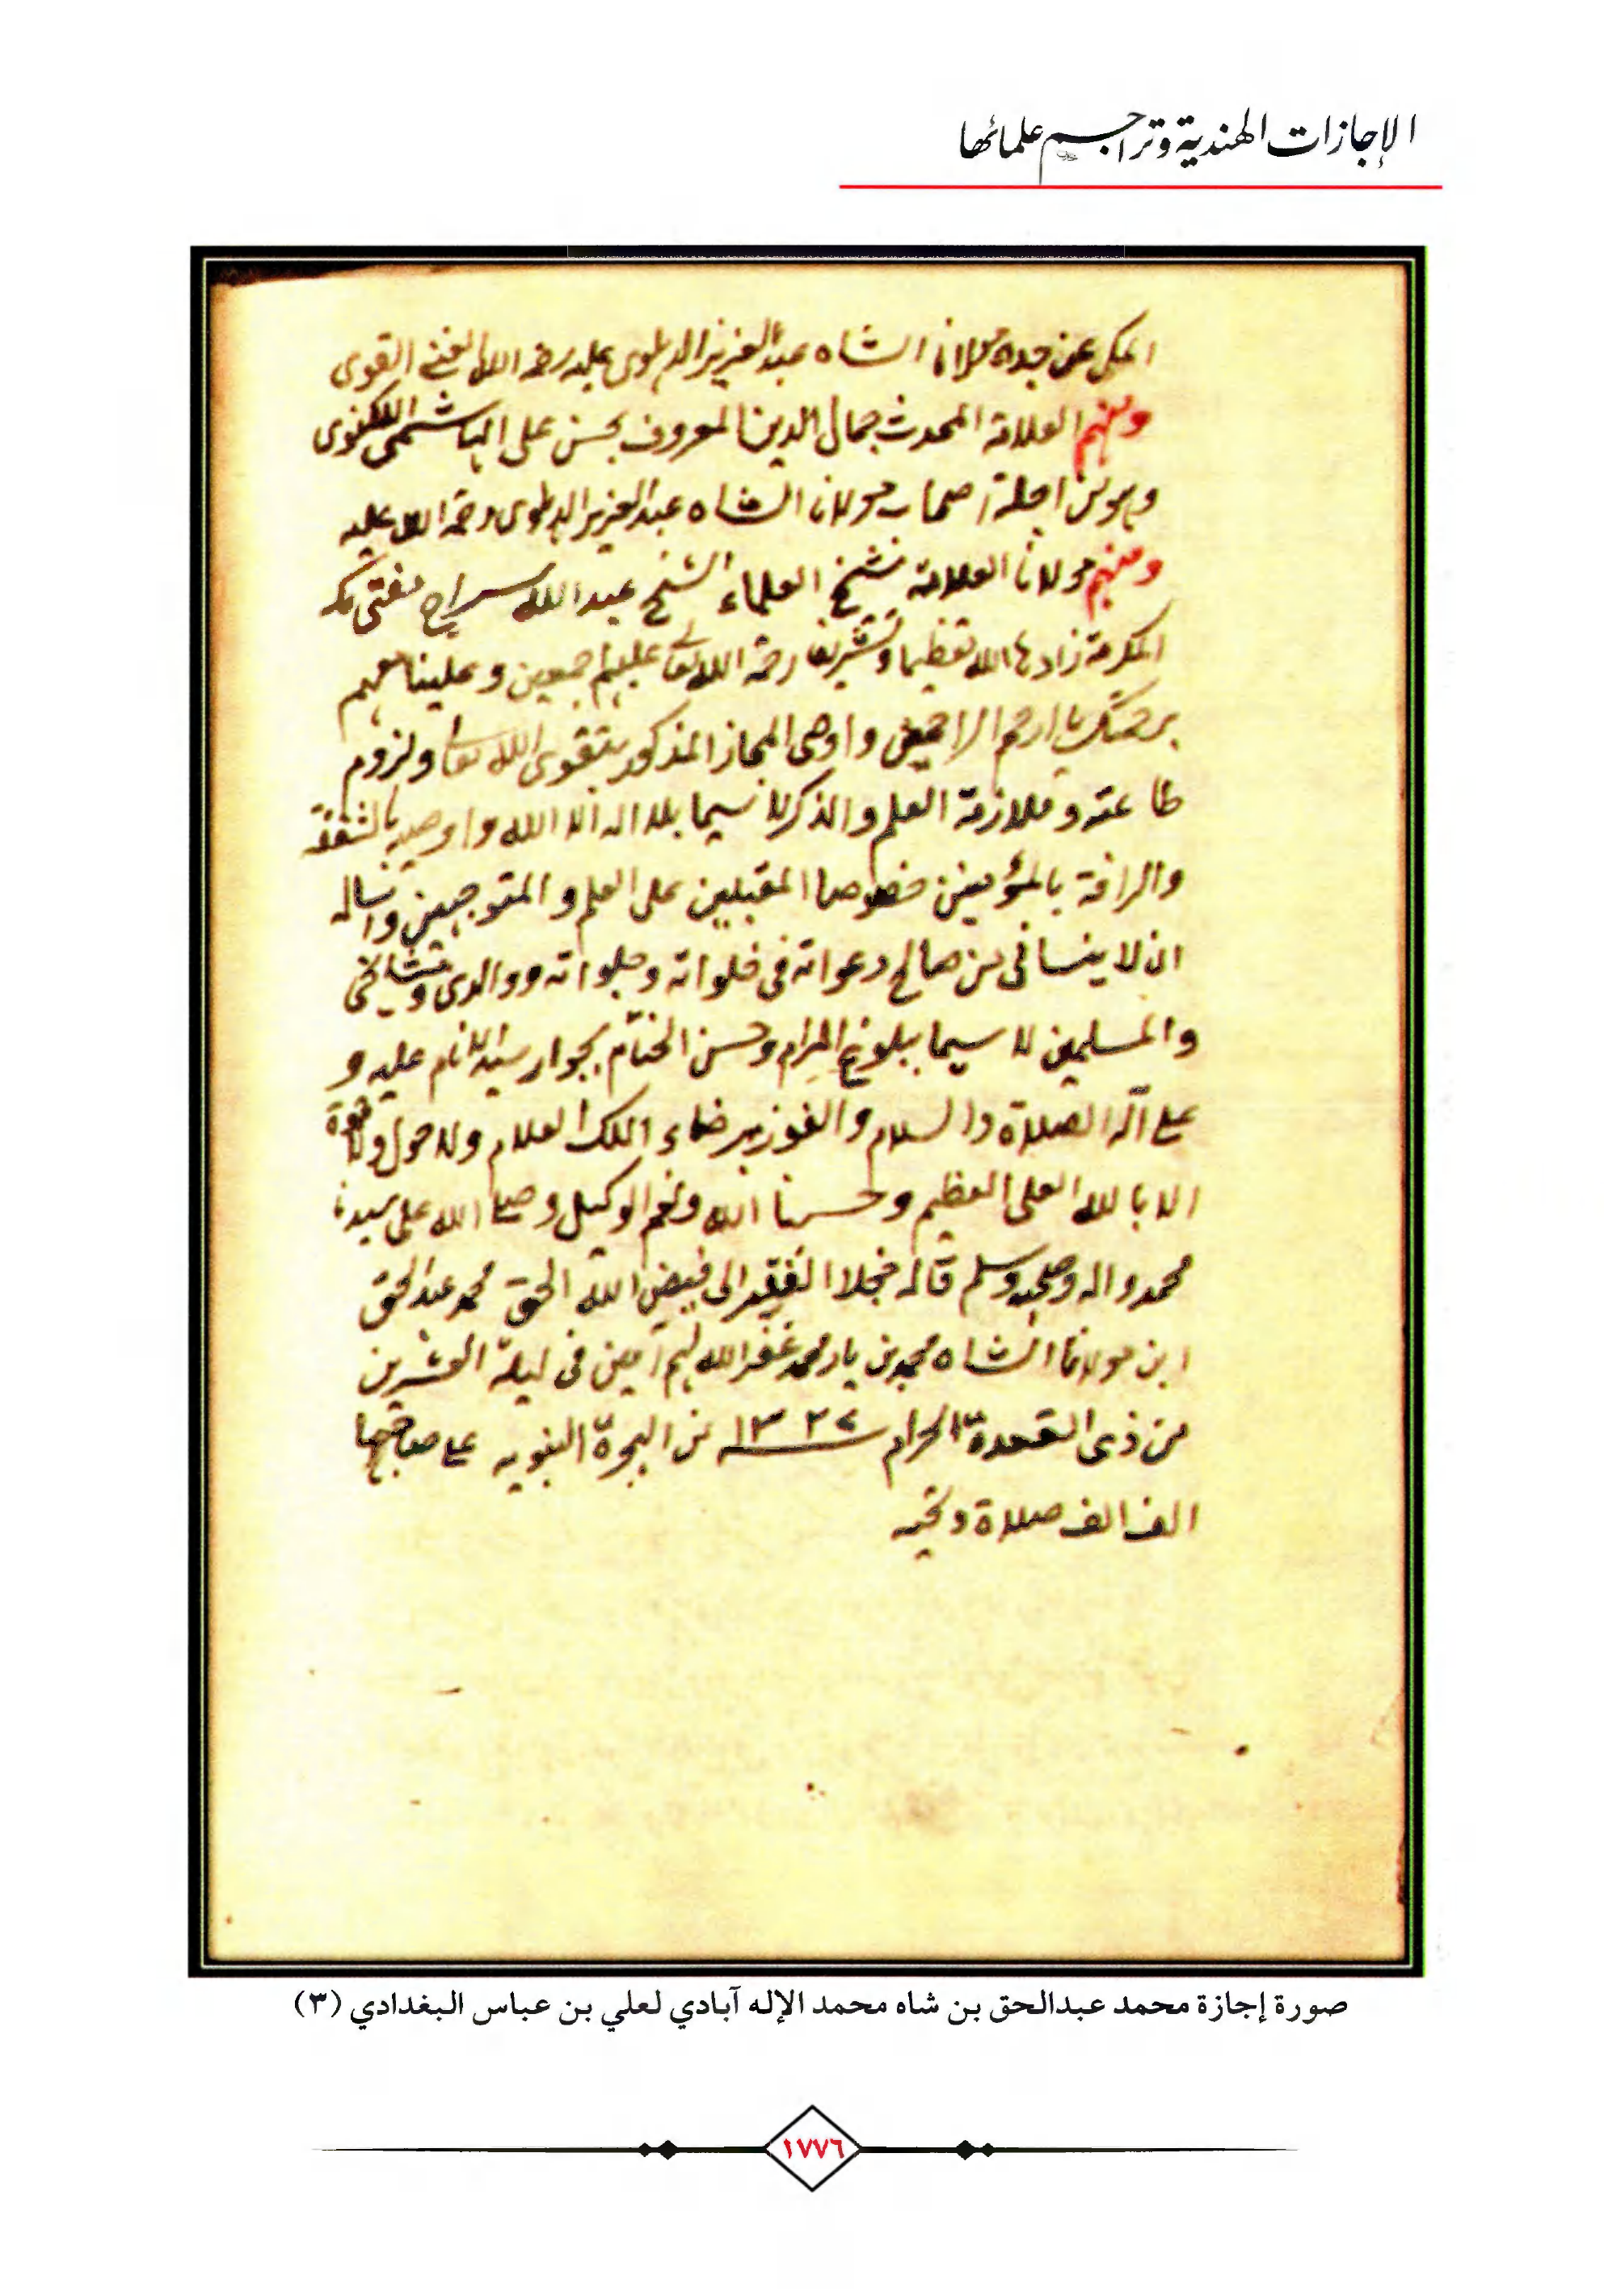 الإجازات الهندية وتراجم علمائها
المكى عن جده مولانا الشاه عبد العزيز الدهلوى عليه رحمة الله الغنى القوى
ومنهم العلامة المحدث جمال الدين المعروف بحسن على الهاشمى اللكنوى
وهو من اجلة اصحاب مولانا الشاه عبد العزيز الدهلوى رحمة الله عليه
ومنهم مولانا العلامة شيخ العلماء الشيخ عبد الله سراج مفتى مكة
المكرمة زادها الله تعظيما وتشريفا رحمة الله تعالى عليهم اجمعين وعلينا معهم
برحمتك يا ارحم الراحمين واوصى المجاز المذكور بتقوى الله تعالى ولزوم
طاعته وملازمة العلم والذكر لا سيما بلا اله الا الله واوصيه بالشفقة
والرافة بالمؤمنين خصوصا المقبلين على العلم والمتوجهين واساله
ان لا ينسانى من صالح دعواته فى خلواته وجلواته ووالدى ومشائخى
والمسلمين لا سيما ببلوغ المرام وحسن الختام بجوار سيد الانام عليه و
على آله الصلاة والسلام والفوز برضاء الملك العلام ولا حول ولا قوة
الا بالله العلى العظيم وحسبنا الله ونعم الوكيل وصلى الله على سيدنا
محمد واله وصحبه وسلم قاله خجلا الفقير الى فيض الله الحق محمد عبد الحق
ابن مولانا الشاه محمد بن يار محمد غفر الله لهم آمين فى ليلة العشرين
من ذى القعدة الحرام ١٣٢٧ من الهجرة النبويه على صاحبها
الف الف صلاة وتحيه
صورة إجازة محمد عبدالحق بن شاه محمد الإله آبادي لعلي بن عباس البغدادي (٣)
١٧٧٦